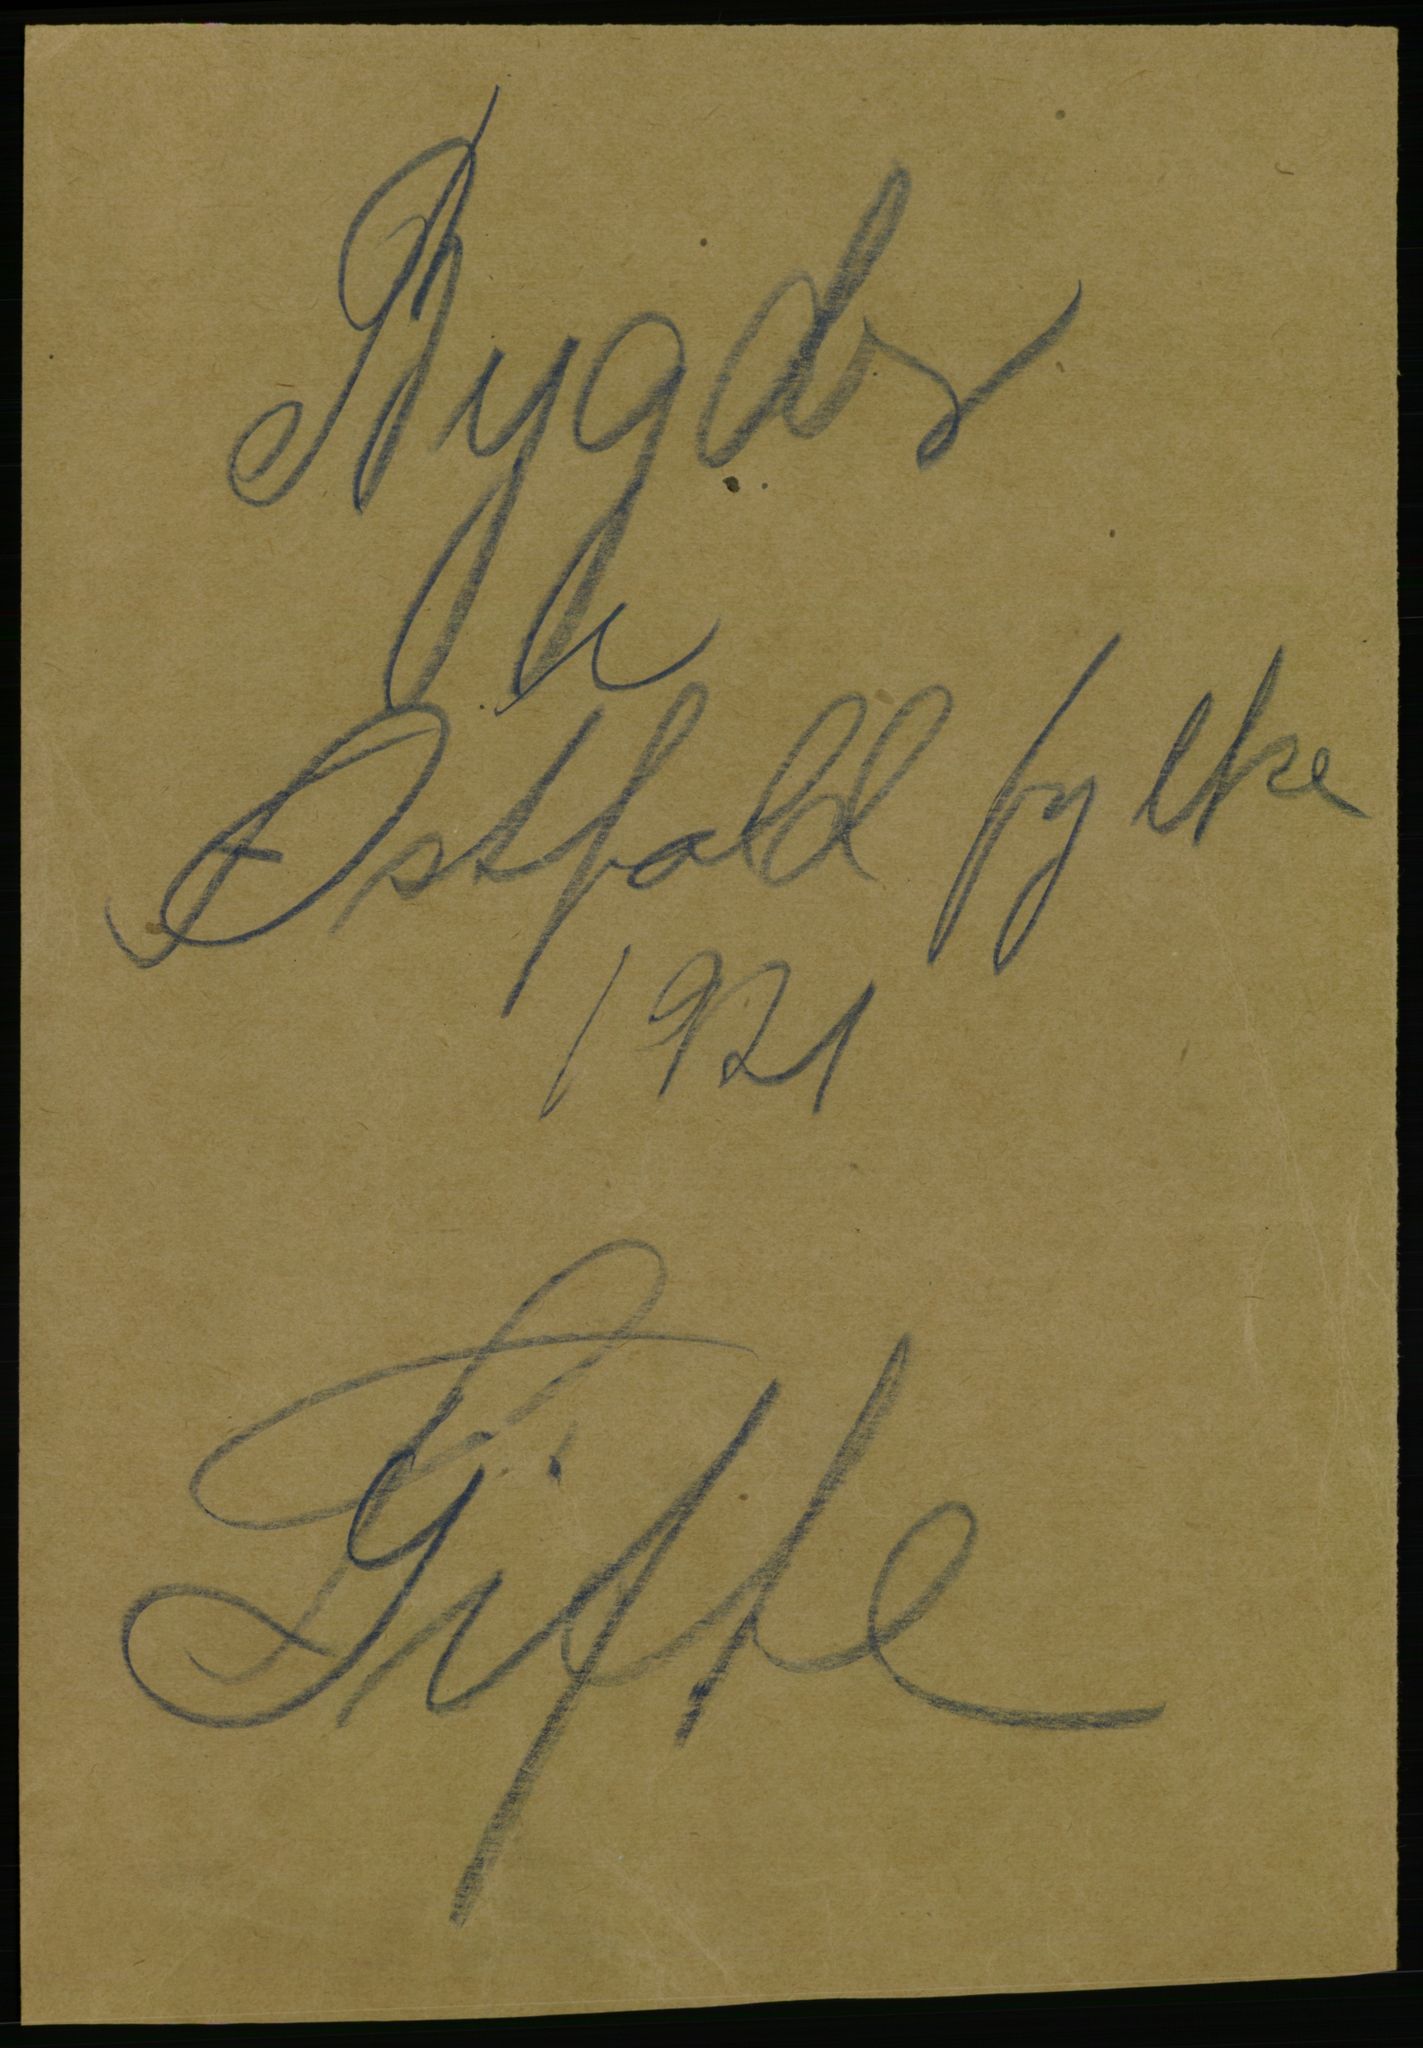 Bygder
i
Østfold fylke
1921
Gifte